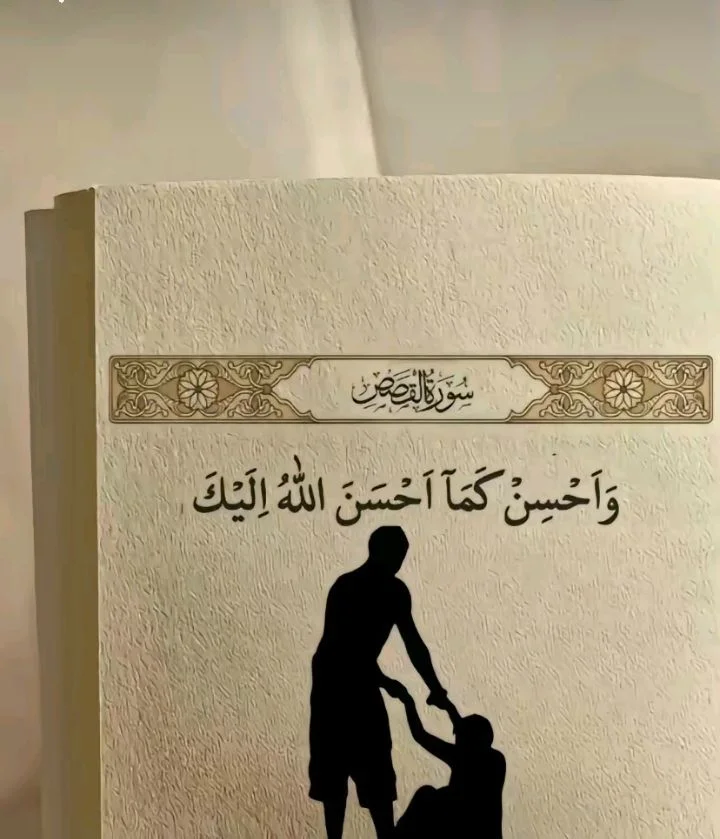 سُورَةُ الْقَصَصِ
وَاَحْسِنْ كَمَآ اَحْسَنَ اللّٰهُ اِلَيْكَ